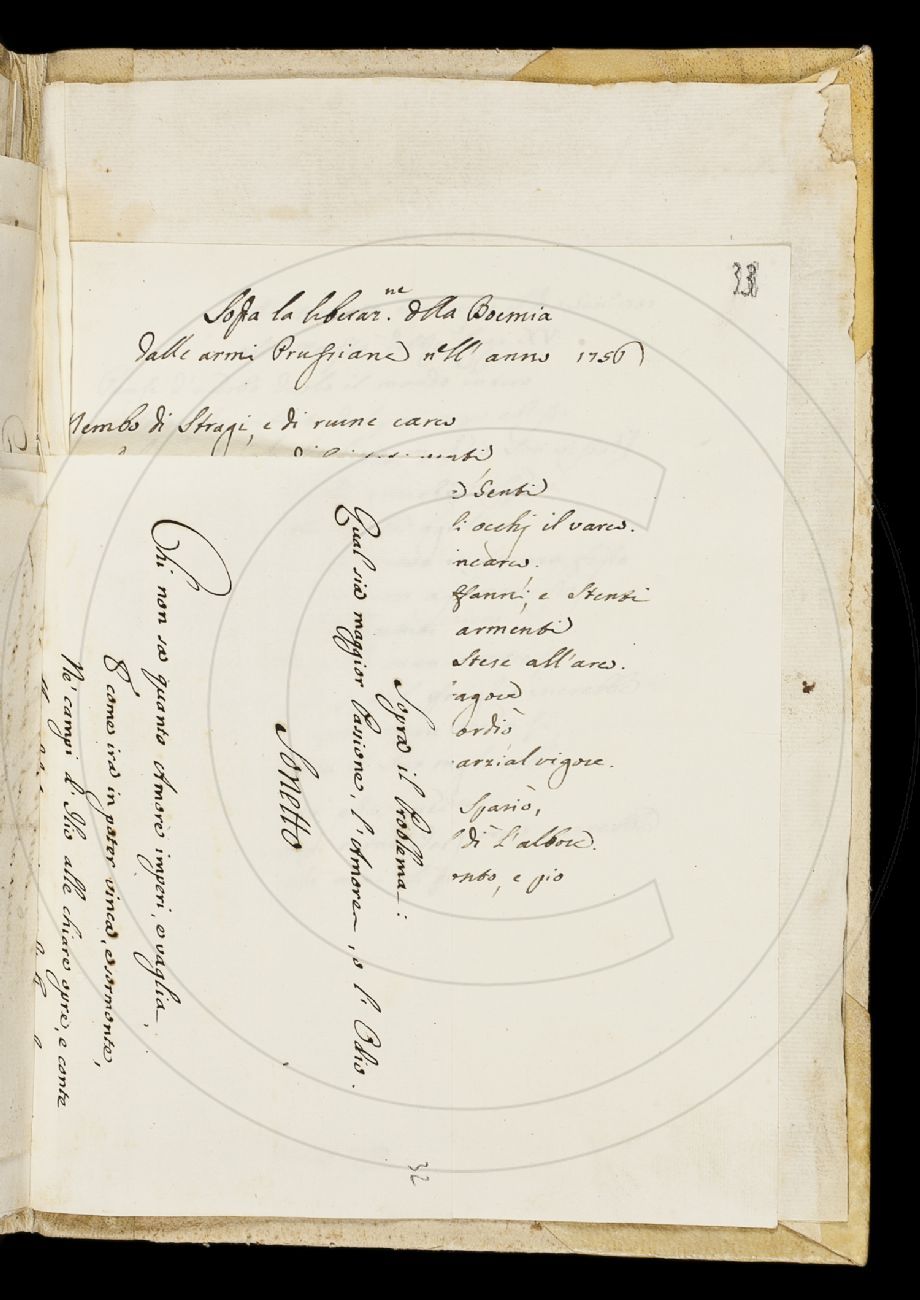 33
Sopra la liberaz.ne della Boemia
dalle armi Prussiane nell' anno 1756
Nembo di Stragi, e di ruine carco
Senti
li occhj il varco.
incarco.
ffanni, e Stenti
armenti
Stese all'arco.
ordìo
arzial vigore.
Sparìo,
dì l'albore.
ento, e pio
Sopra il Problema:
Qual sia maggior Passione, l'Amore, o l'Odio.
Sonetto
Chi non sa quanto Amore imperi, e vaglia,
E come ira in poter vinca, e sormonte,
Ne' campi d'Ilio alle chiare opre, e conte
32